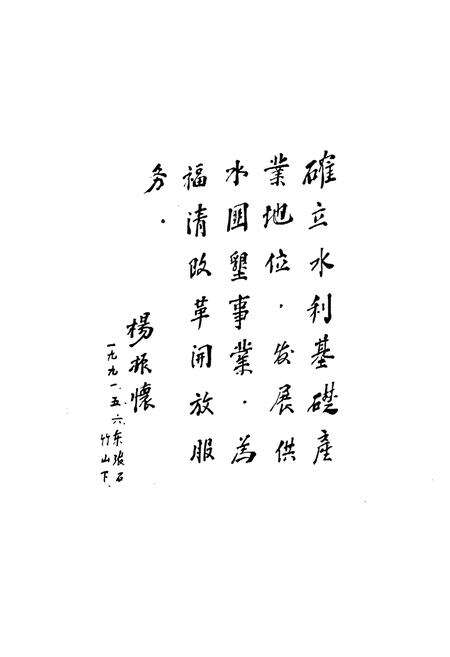 確立水利基礎產
業地位．发展供
水围墾事業．為
福清改革開放服
务．
楊振懷
一九九一.五.六.东张石
竹山下.